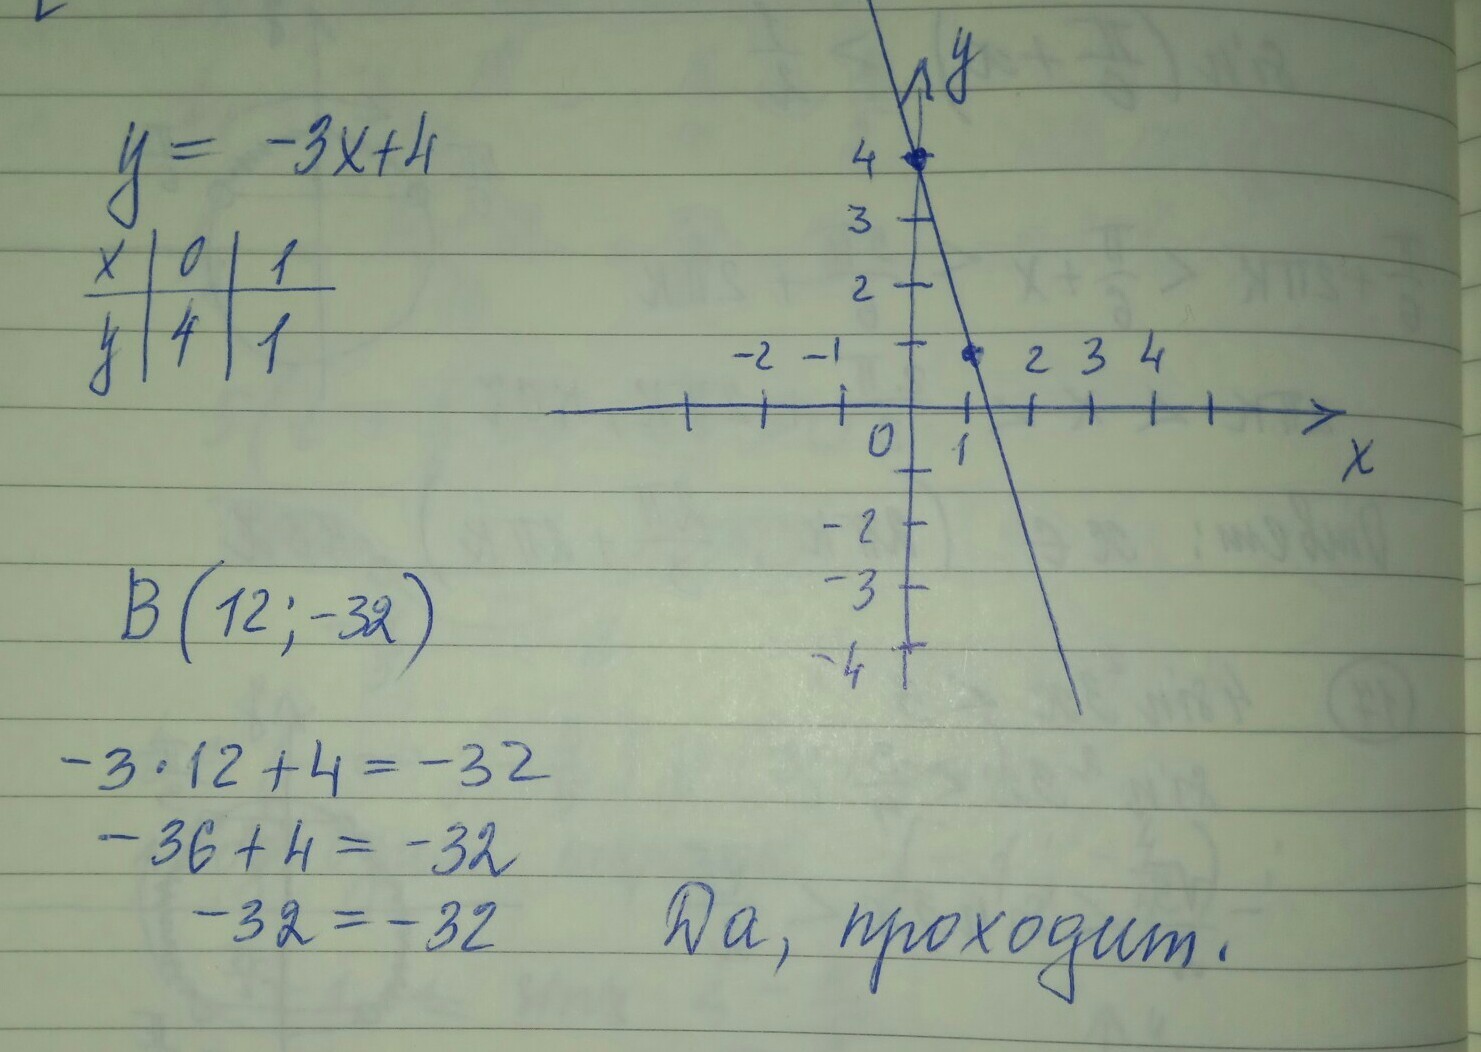 y = -3x+4
x | 0 | 1
y | 4 | 1
y
4
3
2
-2 -1 2 3 4
0 1 x
-2
-3
-4
B(12;-32)
-3·12+4=-32
-36+4=-32
-32=-32
Да, проходит.